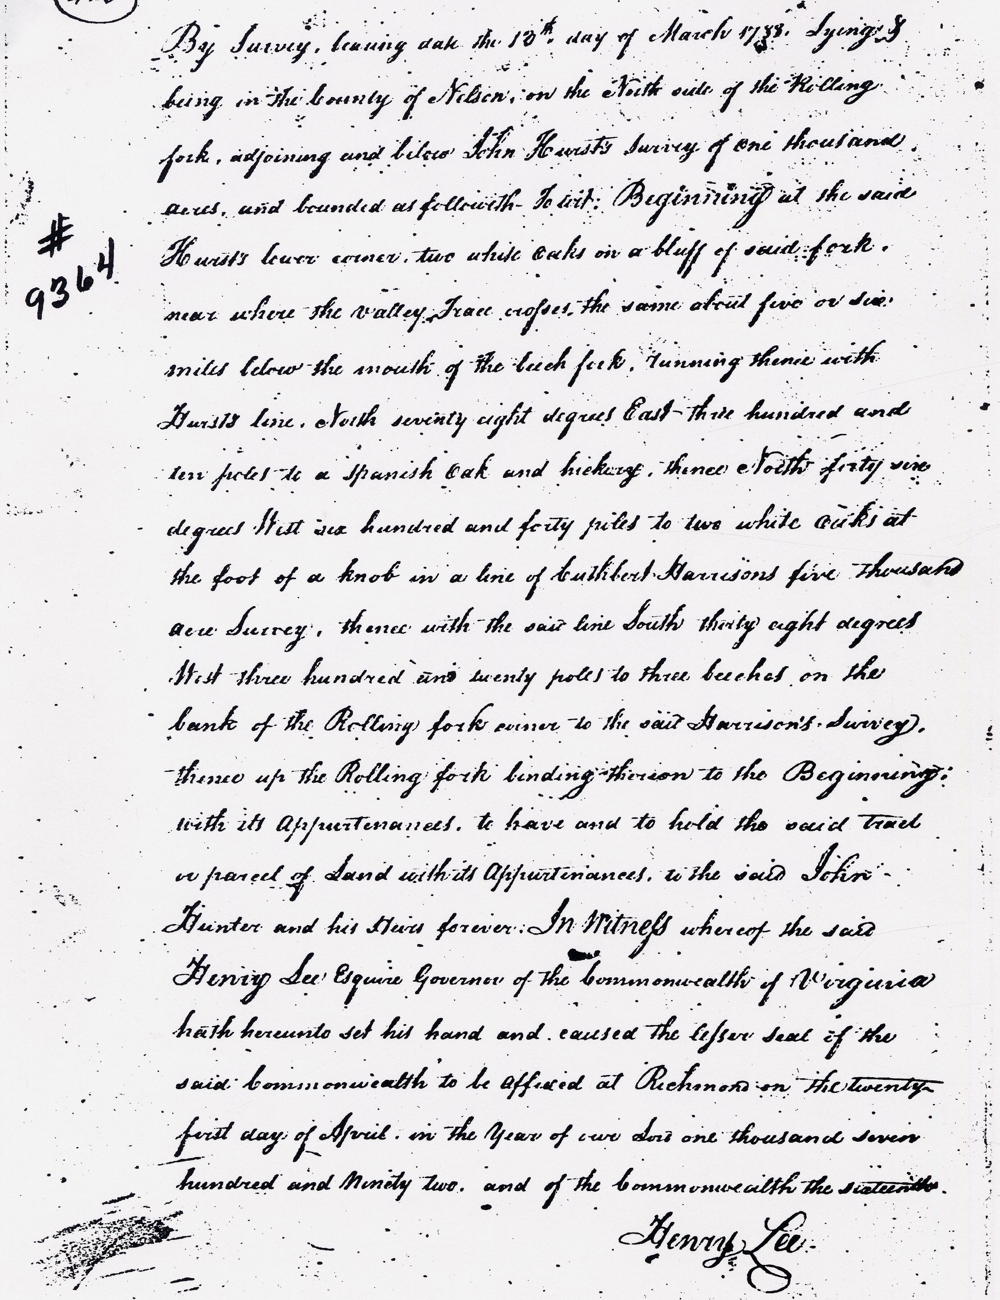 By Survey, bearing date the 18th. day of March 1788. Lying &
being in the County of Nelson, on the North side of the Rolling
fork, adjoining and below John Hurst's Survey of one thousand
acres, and bounded as followeth - To wit: Beginning at the said
#
9364
Hurst's lower corner, two white Oaks on a bluff of said fork,
near where the Valley Trace crosses, the same about five or six
miles below the mouth of the beech fork, running thence with
Hursts line, North seventy eight degrees East three hundred and
ten poles to a Spanish Oak and hickory, thence North forty six
degrees West six hundred and forty poles to two white oaks at
the foot of a knob in a line of Cuthbert Harrisons five thousand
acre Survey, thence with the said line South thirty eight degrees
West three hundred and twenty poles to three beeches on the
bank of the Rolling fork corner to the said Harrison's Survey,
thence up the Rolling fork binding thereon to the Beginning:
with its Appurtenances, to have and to hold the said tract
or parcel of Land with its Appurtinances, to the said John
Hunter and his Heirs forever: In Witness whereof the said
Henry Lee Esquire Governor of the Commonwealth of Virginia
hath hereunto set his hand and caused the lesser seal of the
said Commonwealth to be affixed at Richmond on the twenty
first day of April, in the Year of our Lord one thousand seven
hundred and Ninety two, and of the Commonwealth the sixteenth.
Henry Lee